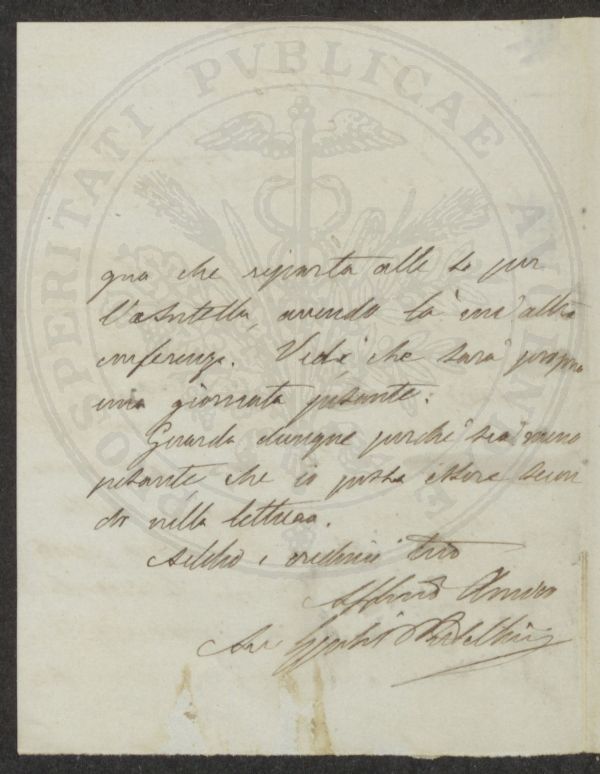 PROSPERITATI PVBLICAE AVGENDAE
qua che riparta alle 10 per
l'Antella, avendo là un'altra
conferenza. Vedi che sarà proprio
una giornata pesante.
Guarda dunque perché sia meno
pesante che io possa essere sicuro
della lettura.
Addio e credimi tuo
Aff.mo Amico